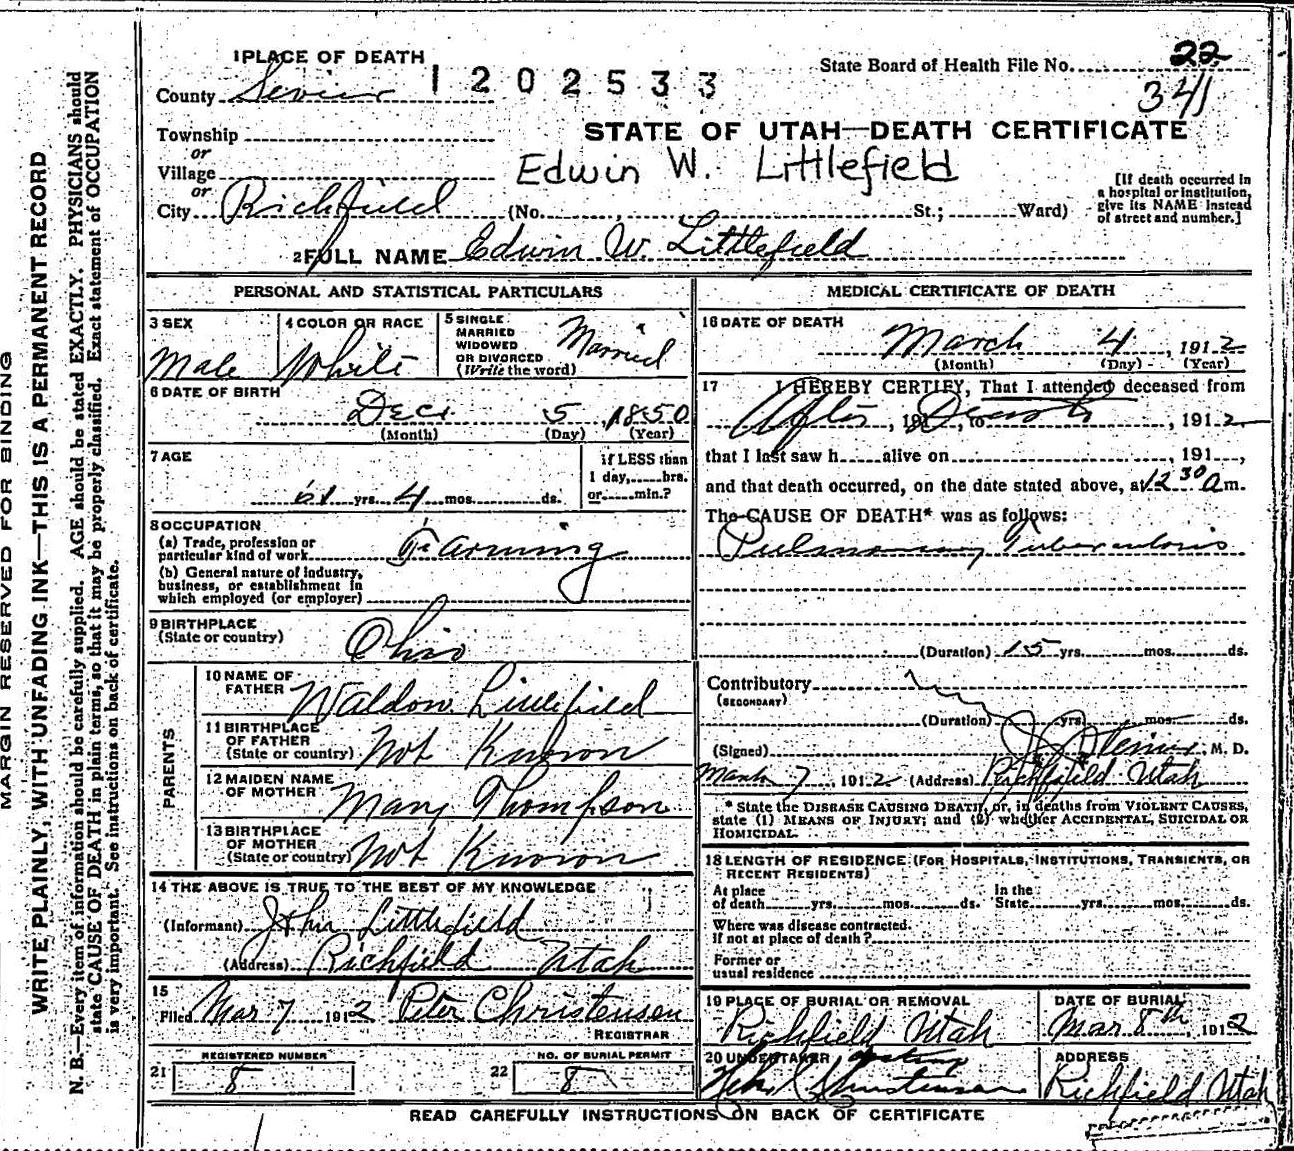 MARGIN RESERVED FOR BINDING
WRITE PLAINLY, WITH UNFADING INK—THIS IS A PERMANENT RECORD
N. B.—Every item of information should be carefully supplied. AGE should be stated EXACTLY. PHYSICIANS should
state CAUSE OF DEATH in plain terms, so that it may be properly classified. Exact statement of OCCUPATION
is very important. See instructions on back of certificate.
1 PLACE OF DEATH
1202533
State Board of Health File No. 22
341
County Sevier
Township
or
Village
or
City Richfield
STATE OF UTAH—DEATH CERTIFICATE
Edwin W. Littlefield
(No. , St.; Ward)
[If death occurred in
a hospital or institution,
give its NAME instead
of street and number.]
2 FULL NAME Edwin W. Littlefield
PERSONAL AND STATISTICAL PARTICULARS
3 SEX
Male
4 COLOR OR RACE
White
5 SINGLE
MARRIED
WIDOWED
OR DIVORCED
(Write the word)
Married
6 DATE OF BIRTH
Dec. 5, 1850
(Month) (Day) (Year)
7 AGE
61 yrs. 4 mos. ds.
if LESS than
1 day, hrs.
or min.?
8 OCCUPATION
(a) Trade, profession or
particular kind of work Farming
(b) General nature of industry,
business, or establishment in
which employed (or employer)
9 BIRTHPLACE
(State or country)
Ohio
PARENTS
10 NAME OF
FATHER Waldon Littlefield
11 BIRTHPLACE
OF FATHER
(State or country) Not Known
12 MAIDEN NAME
OF MOTHER Mary Thompson
13 BIRTHPLACE
OF MOTHER
(State or country) Not Known
14 THE ABOVE IS TRUE TO THE BEST OF MY KNOWLEDGE
(Informant) John Littlefield
(Address) Richfield Utah
15
Filed Mar 7 1912 Peter Christensen
REGISTRAR
REGISTERED NUMBER
21 8
NO. OF BURIAL PERMIT
22 8
MEDICAL CERTIFICATE OF DEATH
16 DATE OF DEATH
March 4, 1912
(Month) (Day) (Year)
17 I HEREBY CERTIFY, That I attended deceased from
After, 191 Death, to , 1912
that I last saw h alive on , 191 ,
and that death occurred, on the date stated above, at 12 30 a m.
The CAUSE OF DEATH* was as follows:
Pulmonary Tuberculosis
(Duration) 15 yrs. mos. ds.
Contributory
(SECONDARY)
(Duration) yrs. mos. ds.
(Signed) M. D.
March 7, 1912 (Address) Richfield Utah
* State the DISEASE CAUSING DEATH, or, in deaths from VIOLENT CAUSES,
state (1) MEANS OF INJURY; and (2) whether ACCIDENTAL, SUICIDAL OR
HOMICIDAL.
18 LENGTH OF RESIDENCE (FOR HOSPITALS, INSTITUTIONS, TRANSIENTS, OR
RECENT RESIDENTS)
At place
of death yrs. mos. ds.
In the
State yrs. mos. ds.
Where was disease contracted.
If not at place of death?
Former or
usual residence
19 PLACE OF BURIAL OR REMOVAL
Richfield Utah
DATE OF BURIAL
Mar 8th 1912
20 UNDERTAKER
Christensen
ADDRESS
Richfield Utah
READ CAREFULLY INSTRUCTIONS ON BACK OF CERTIFICATE